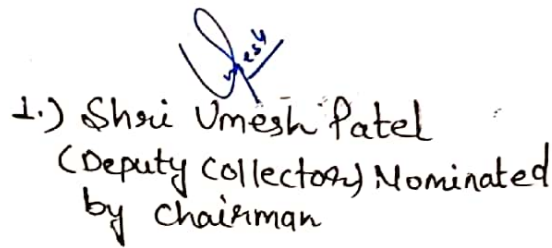 Umesh
1.) Shri Umesh Patel
(Deputy Collector) Nominated
by Chairman